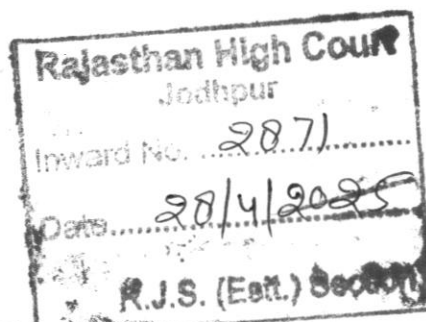 Rajasthan High Court
Jodhpur
Inward No. ....2871..........
Date....28/4/2025
R.J.S. (Estt.) Section